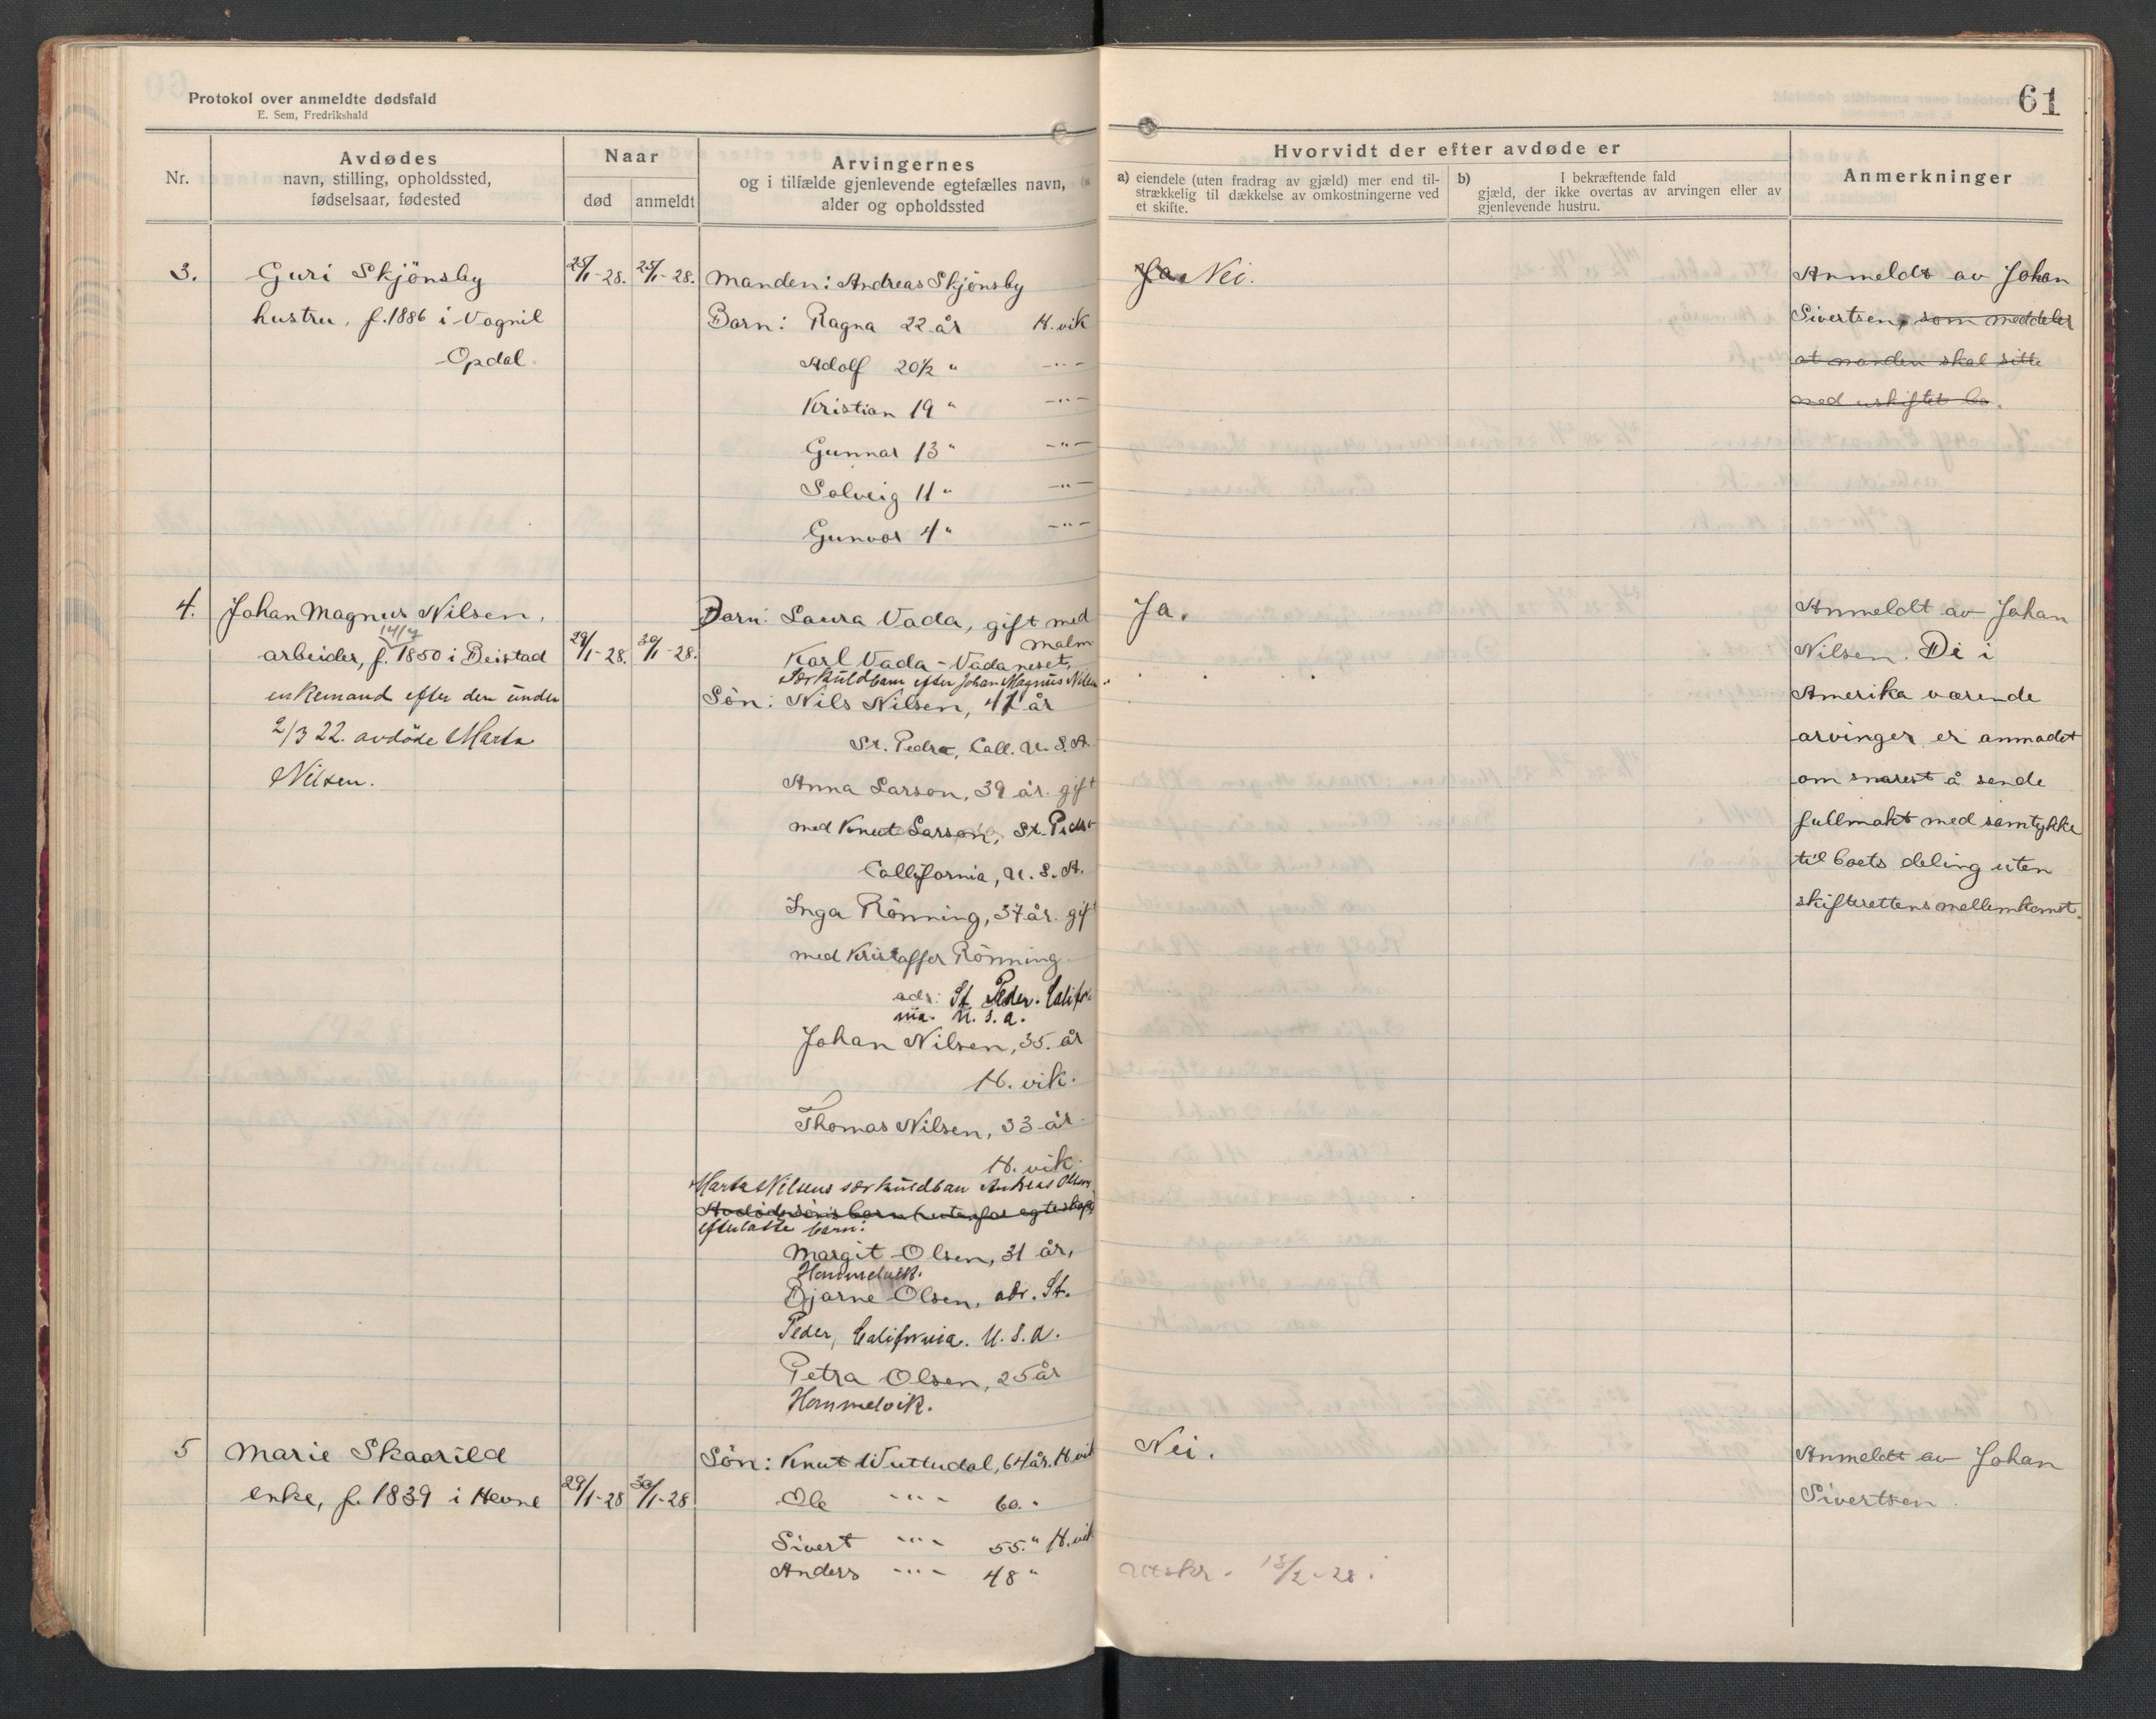 Protokol over anmeldte dødsfald
E. Sem, Fredrikshald
61
Nr.
Avdødes
navn, stilling, opholdssted,
fødselsaar, fødested
Naar
død
anmeldt
Arvingernes
og i tilfælde gjenlevende egtefælles navn,
alder og opholdssted
Hvorvidt der efter avdøde er
a) eiendele (uten fradrag av gjæld) mer end til-
strækkelig til dækkelse av omkostningerne ved
et skifte.
b) I bekræftende fald
gjæld, der ikke overtas av arvingen eller av
gjenlevende hustru.
Anmerkninger
3.
Guri Skjönsby
hustru, f. 1886 i Vognil
Opdal.
25/1-28.
25/1-28.
Manden: Andreas Skjönsby
Barn: Ragna 22 år H.vik
Adolf 20 1/2 " -"-
Kristian 19 " -"-
Gunnar 13 " -"-
Solveig 11 " -"-
Gunvor 4 " -"-
Ja. Nei.
Anmeldt av Johan
Sivertsen, som meddeler
at manden skal sitte
med uskiftet bo.
4.
Johan Magnus Nilsen,
14/7
arbeider, f. 1850 i Beistad
enkemand efter den under
2/3 22. avdöde Marta
Nilsen.
29/1-28.
30/1-28.
Barn: Laura Vada, gift med
Malm
Karl Vada - Vadaneset,
Særkuldbarn efter Johan Magnus Nilsen
Sön: Nils Nilsen, 41 år
St. Pedro, Call. U.S.A.
Anna Larson, 39 år. gift
med Knut Larson, St. Pedro
Callifornia, U.S.A.
Inga Rönning, 37 år. gift
med Kristoffer Rönning
adr: St. Peder. Califor
nia. U.S.A.
Johan Nilsen, 35. år
H. vik.
Thomas Nilsen, 33 år.
H. vik.
Marta Nilsens særkuldbarn Andreas Olsens
efterlatte barn:
Margit Olsen, 31 år,
Hommelvik.
Bjarne Olsen, adr. St.
Peder, California. U.S.A.
Petra Olsen, 25 år
Hommelvik.
Ja.
Anmeldt av Johan
Nilsen. De i
Amerika værende
arvinger er anmodet
om snarest å sende
fullmakt med samtykke
til boets deling uten
skifterettens mellemkomst.
5
Marie Skaarild
enke, f. 1839 i Hevne
29/1-28
30/1-28
Sön: Knut Wuttudal, 64 år. H.vik
Ole -"- 60. "
Sivert -"- 55. " H.vik
Anders -"- 48 "
Nei.
Utskr. 13/2-28.
Anmeldt av Johan
Sivertsen.